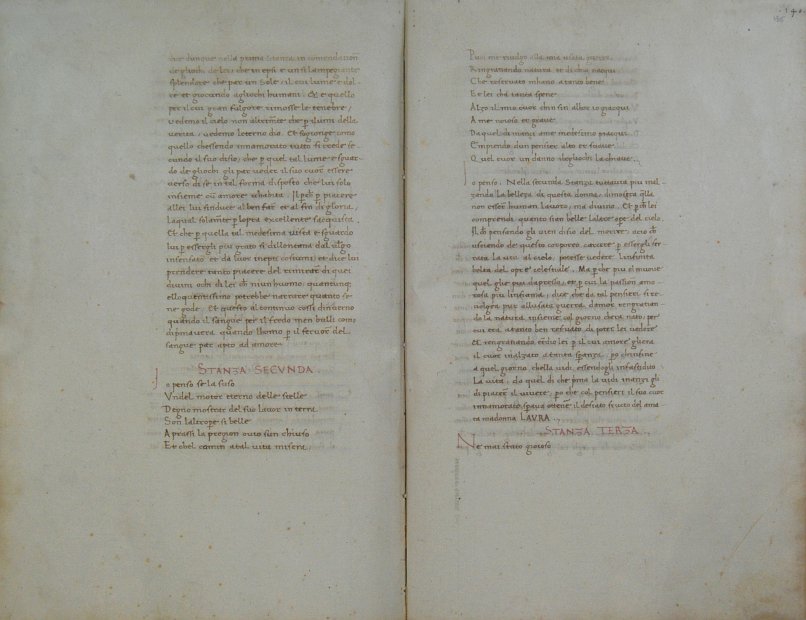 dice dunque nella prima Stanza in comendation
de gliochi de lei; che in essi e un si lampegiante
splendore che par un Sole; il cui lume e dol-
re et giocundo agliochi humani. Et e quello
per il cui gran fulgore rimosse le tenebre,
vedemo il cielo non altrimẽte che p̱ i lumi della
verita, vedemo leterno dio. Et sogionge como
quello chessendo innamorato tutto si crede se-
cundo il suo disio; che p̱ quel tal lume e sguar-
do de gliochi gli par veder il suo cuor essere
verso di se in tal forma disposto che lui solo
insieme cũ amore vhabita. Il p̱che p̱ piacere
allei lui sinduce al ben far et al fin di gloria,
Laqual solamẽte p̱ lopra excellente sacquista.
Et che p̱ quella tal medesima vista e sguardo
lui p̱ essergli piu grato si dillontana dal vulgo
insensato et da suoi inepti costumi; et dice lui
prendere tanto piacere del rimirar di quei
divini ochi di lei che niun huomo quantunque
elloquentissimo potrebbe narrare quanto se
ne gode. Et questo al continuo cossi dinverno
quando il sangue per il fredo men bulli como
di primavera quando lhomo p̱ il fervor del
sangue par apto ad amore.
STANZA SECVNDA.
Io penso se la suso
Vndel motor eterno delle stelle
Degno mostrar del suo lavor in terra
Son laltrope si belle
Aprassi la pregion ovio sun chiuso
Et chel camin a tal vita miserra;
Puoi me rivolgo alla mia usata guerra
Ringratiando natura et di chio nacqui
Che reservato mhano a tanto bene
Et lei cha tanta spene
Alzo il mio cuor chin sin alhor io giacqui
A me noioso et grave
Da quel di inanzi a me medesimo piacqui
Empiendo dun pensier alto et suave
Quel cuor un danno ibegliochi la chiave.
Io penso. Nella secunda Stanza tuttavia piu mal-
zando la belleza di questa donna; dimostra q̃lla
non esser human lavoro, ma divino. Et p̱che lei
comprendi quanto sian belle laltre ope del cielo.
Il che pensando gli vien disio del morire; acio che
usciendo de questo corporeo carcere p̱ essergli ser-
rata la via al cielo, potesse vedere linfinita
belta del opre celestiale. Ma p̱che piu el muove
quel glie piu dapresso, et p̱ cui la passion amo-
rosa piu linfiama; dice che da tal pensieri si re-
volgea pur allusata guerra damore rengratian-
do la natura insieme col giorno chera nato; per
cui era atanto ben resuato, di poter lei vedere
Et rengratiando etdio lei p̱ il cui amore gliera
il cuor inalzato a tanta speranza, po che in fine
a quel giorno chella vidi, essendogli infastidito
La vita; da quel di che prima la vidi inanzi gli
di piacer il vivere; po che col pensieri il suo cuor
innamorato sperava ottener il desiato fructo del ama
ta madonna LAVRA.
STANZA TERZA.
Ne mai stato gioioso